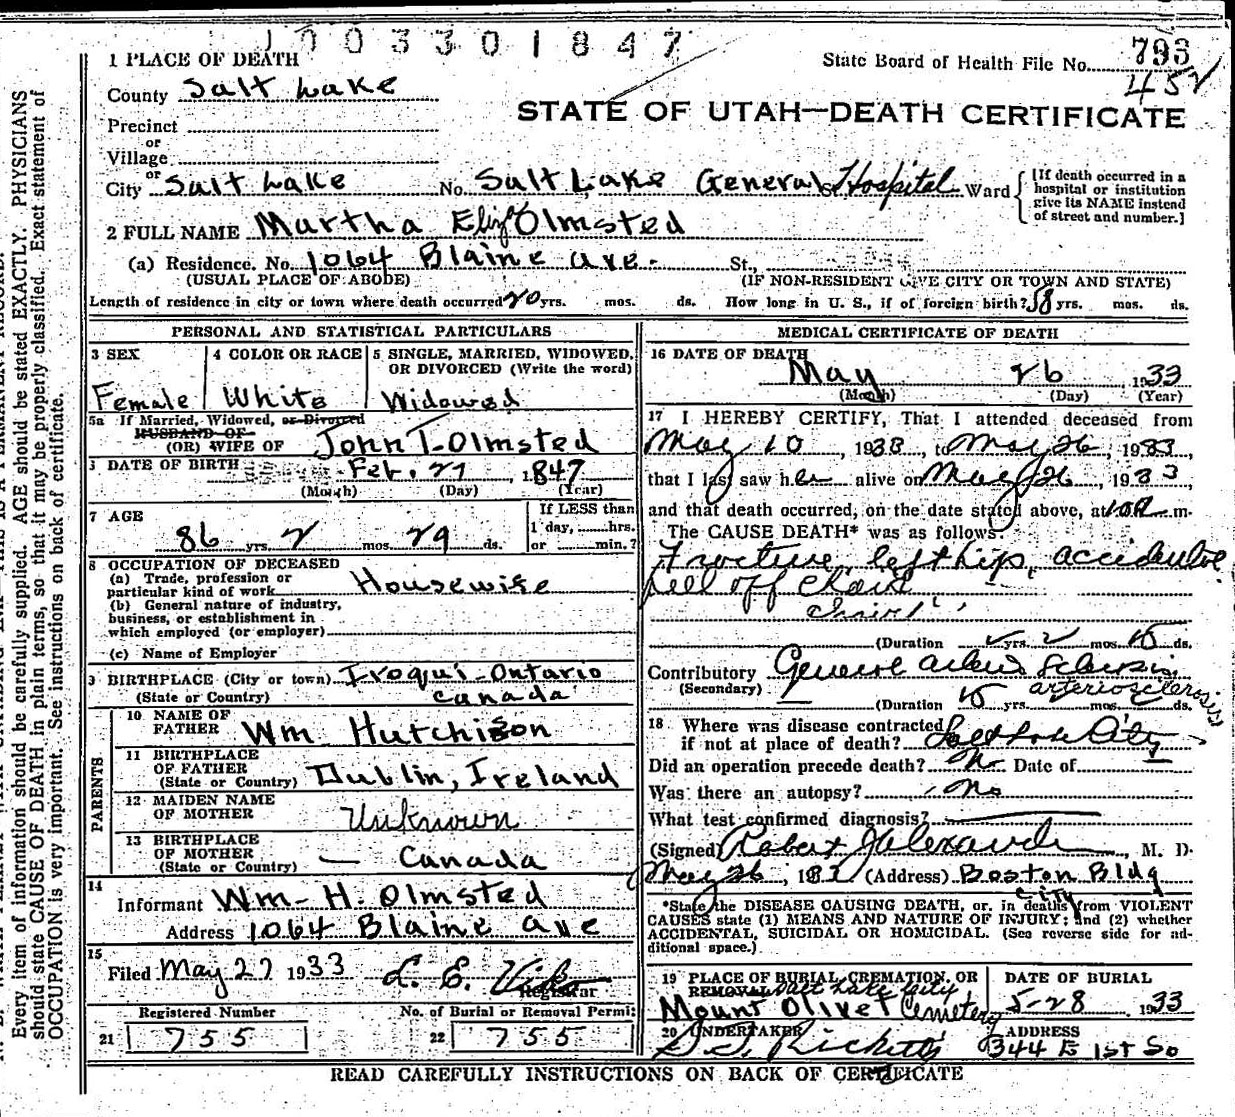 1003301847
1 PLACE OF DEATH
State Board of Health File No. 793
452
County Salt Lake
STATE OF UTAH—DEATH CERTIFICATE
Precinct
or
Village
or
City Salt Lake No. Salt Lake General Hospital St. Ward
[If death occurred in a
hospital or institution
give its NAME instead
of street and number.]
2 FULL NAME Martha Eliz Olmsted
(a) Residence. No. 1064 Blaine Ave. St.,
(USUAL PLACE OF ABODE) (IF NON-RESIDENT GIVE CITY OR TOWN AND STATE)
Length of residence in city or town where death occurred 20 yrs. mos. ds. How long in U. S., if of foreign birth? 58 yrs. mos. ds.
PERSONAL AND STATISTICAL PARTICULARS
3 SEX
Female
4 COLOR OR RACE
White
5 SINGLE, MARRIED, WIDOWED,
OR DIVORCED (Write the word)
Widowed
5a If Married, Widowed, or Divorced
HUSBAND OF
(OR) WIFE OF John T. Olmsted
DATE OF BIRTH Feb. 27, 1847
(Month) (Day) (Year)
7 AGE
86 yrs. 2 mos. 29 ds.
If LESS than
1 day, hrs.
or min.?
8 OCCUPATION OF DECEASED
(a) Trade, profession or
particular kind of work Housewife
(b) General nature of industry,
business, or establishment in
which employed (or employer)
(c) Name of Employer
9 BIRTHPLACE (City or town) Iroqui-Ontario
(State or Country) Canada
PARENTS
10 NAME OF
FATHER Wm Hutchison
11 BIRTHPLACE
OF FATHER
(State or Country) Dublin, Ireland
12 MAIDEN NAME
OF MOTHER Unknown
13 BIRTHPLACE
OF MOTHER
(State or Country) — Canada
14
Informant Wm. H. Olmsted
Address 1064 Blaine Ave
15
Filed May 27 1933 L. E.
Registrar
Registered Number
21 755
No. of Burial or Removal Permit
22 755
MEDICAL CERTIFICATE OF DEATH
16 DATE OF DEATH
May 26 1933
(Month) (Day) (Year)
17 I HEREBY CERTIFY, That I attended deceased from
May 10, 1933, to May 26, 1933,
that I last saw her alive on May 26, 1933,
and that death occurred, on the date stated above, at m.
The CAUSE DEATH* was as follows:
Fracture left hip, accidental
fell off chair
chair
(Duration yrs. 2 mos. 15 ds.
Contributory General Arterio Sclerosis
(Secondary) arteriosclerosis
(Duration 15 yrs. mos. ds.
18 Where was disease contracted
if not at place of death? Salt Lake City
Did an operation precede death? No Date of
Was there an autopsy? No
What test confirmed diagnosis?
(Signed) Robert J Alexander, M. D.
May 26, 1933 (Address) Boston Bldg
City
*State the DISEASE CAUSING DEATH, or, in deaths from VIOLENT
CAUSES state (1) MEANS AND NATURE OF INJURY; and (2) whether
ACCIDENTAL, SUICIDAL OR HOMICIDAL. (See reverse side for ad-
ditional space.)
19 PLACE OF BURIAL, CREMATION, OR
REMOVAL Salt Lake City
Mount Olivet Cemetery
DATE OF BURIAL
5-28 1933
20 UNDERTAKER
S. S. Ricketts
ADDRESS
344 E 1st So
READ CAREFULLY INSTRUCTIONS ON BACK OF CERTIFICATE
Every item of information should be carefully supplied. AGE should be stated EXACTLY. PHYSICIANS
should state CAUSE OF DEATH in plain terms, so that it may be properly classified. Exact statement of
OCCUPATION is very important. See instructions on back of certificate.